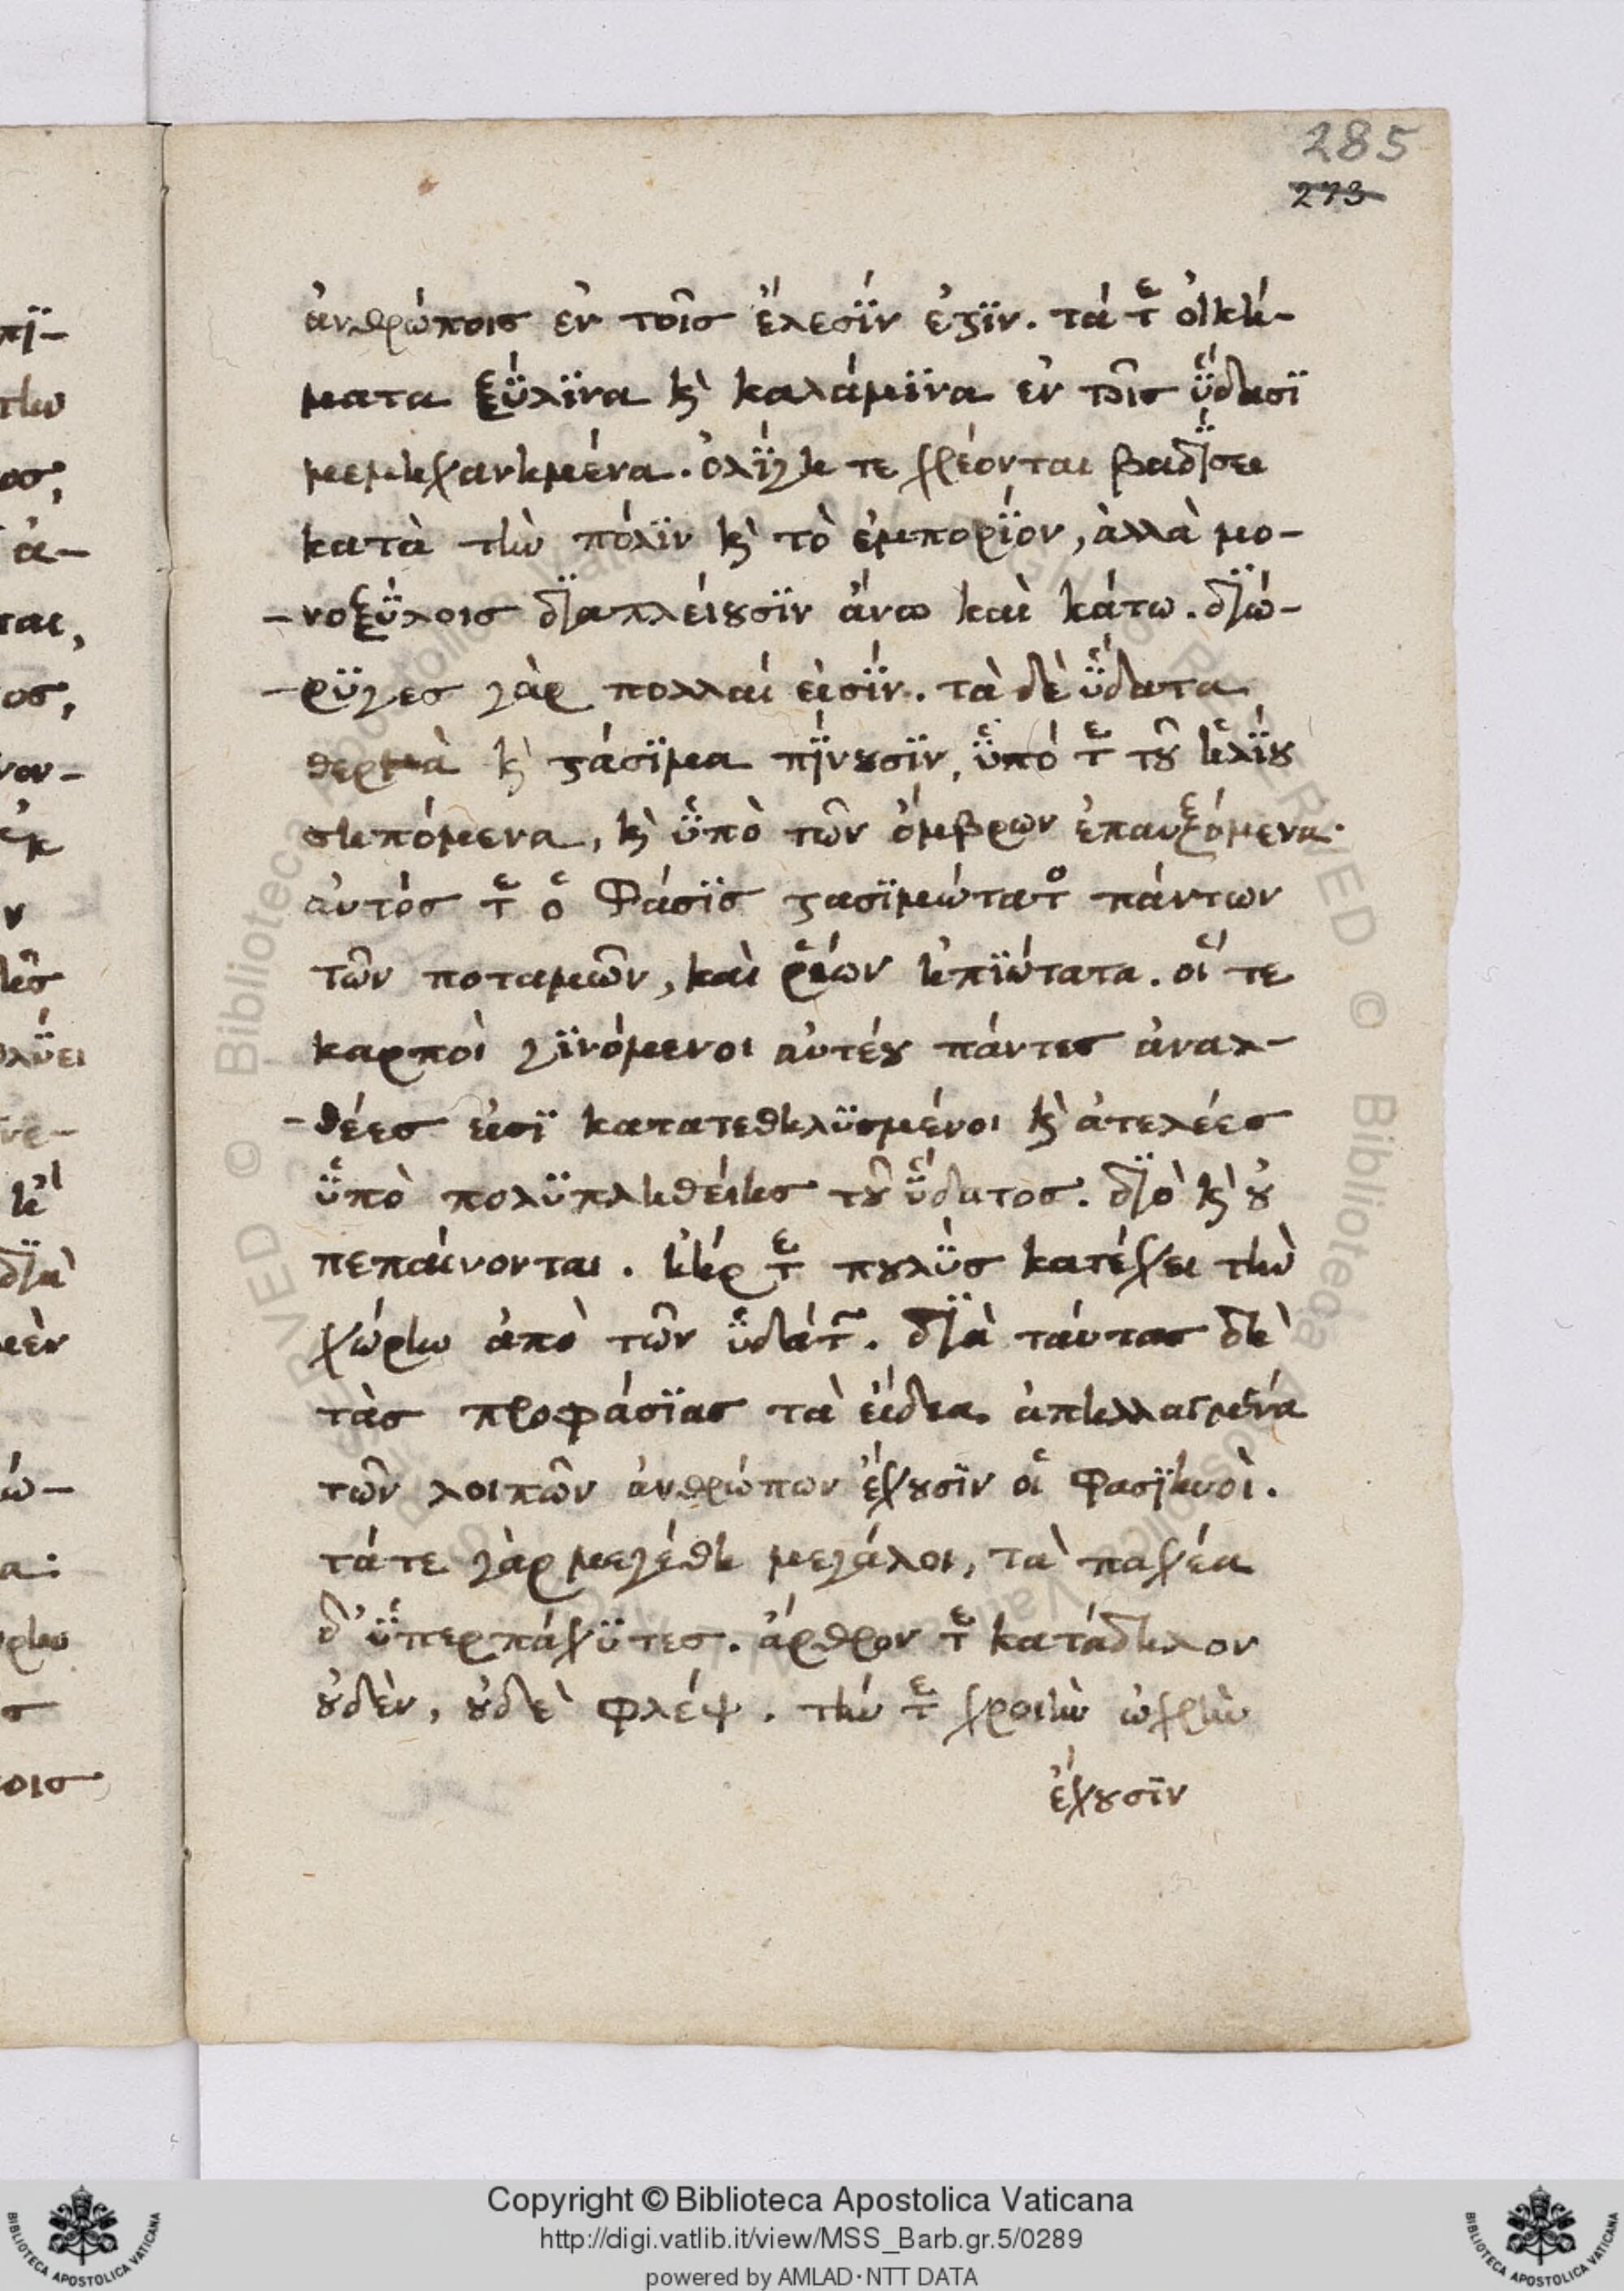 285
273
ἀνθρώποισ ἐν τοῖσ ἕλεσϊν ἐϛϊν. τά τὲ οἰκή-
ματα ξύλϊνα κὶ καλάμϊνα ἐν τοῖσ ὕδασϊ
μεμηχανημένα. ὀλΐγη τε χρέονται βαδΐσει
κατὰ τὴν πόλϊν κὶ τὸ ἐμπορΐον, ἀλλὰ μο-
-νοξΰλοισ δϊαπλείȣσϊν ἄνω καὶ κάτω. δϊώ-
-ρϋγεσ γὰρ πολλαί εἰσΐν. τὰ δὲ ὕδατα
θερμὰ κὶ ϛάσϊμα πΐνȣσϊν, ὑπό τὲ τȣ͂ ἡλΐȣ
σηπόμενα, κὶ ὑπὸ τῶν ὄμβρων ἐπαυξόμενα.
αὐτόσ τὲ ὁ Φάσϊσ ϛασϊμώτατο πάντων
τῶν ποταμῶν, καὶ ῥέων ἠπϊώτατα. οἵ τε
καρποὶ γϊνόμενοι αὐτέȣ πάντεσ ἀναλ-
-θέεσ εἰσϊ κατατεθηλϋσμένοι κὶ ἀτελέεσ
ὑπὸ πολϋπληθείησ τȣ͂ ὕδατοσ. δϊὸ κὶ ȣ̓
πεπαίνονται. ἠήρ τὲ πȣλῢσ κατέχει τὴν
χώρην ἀπὸ τῶν ὑδάτ͂. δϊὰ ταύτασ δὲ
τὰσ προφάσϊασ τὰ εἴδεα ἀπηλλαγμένα
τῶν λοιπῶν ἀνθρώπων ἔχȣσϊν οἱ Φασϊηνοὶ.
τάτε γὰρ μεγέθη μεγάλοι, τὰ παχέα
δ' ὑπερπάχϋτεσ. ἄρθρον τὲ κατάδηλον
ȣ̓δὲν, ȣ̓δὲ φλέψ. τήν τὲ χροιὴν ὠχρὴν
ἔχȣσϊν
Copyright © Biblioteca Apostolica Vaticana
http://digi.vatlib.it/view/MSS_Barb.gr.5/0289
powered by AMLAD·NTT DATA
BIBLIOTECA APOSTOLICA VATICANA
BIBLIOTECA APOSTOLICA VATICANA